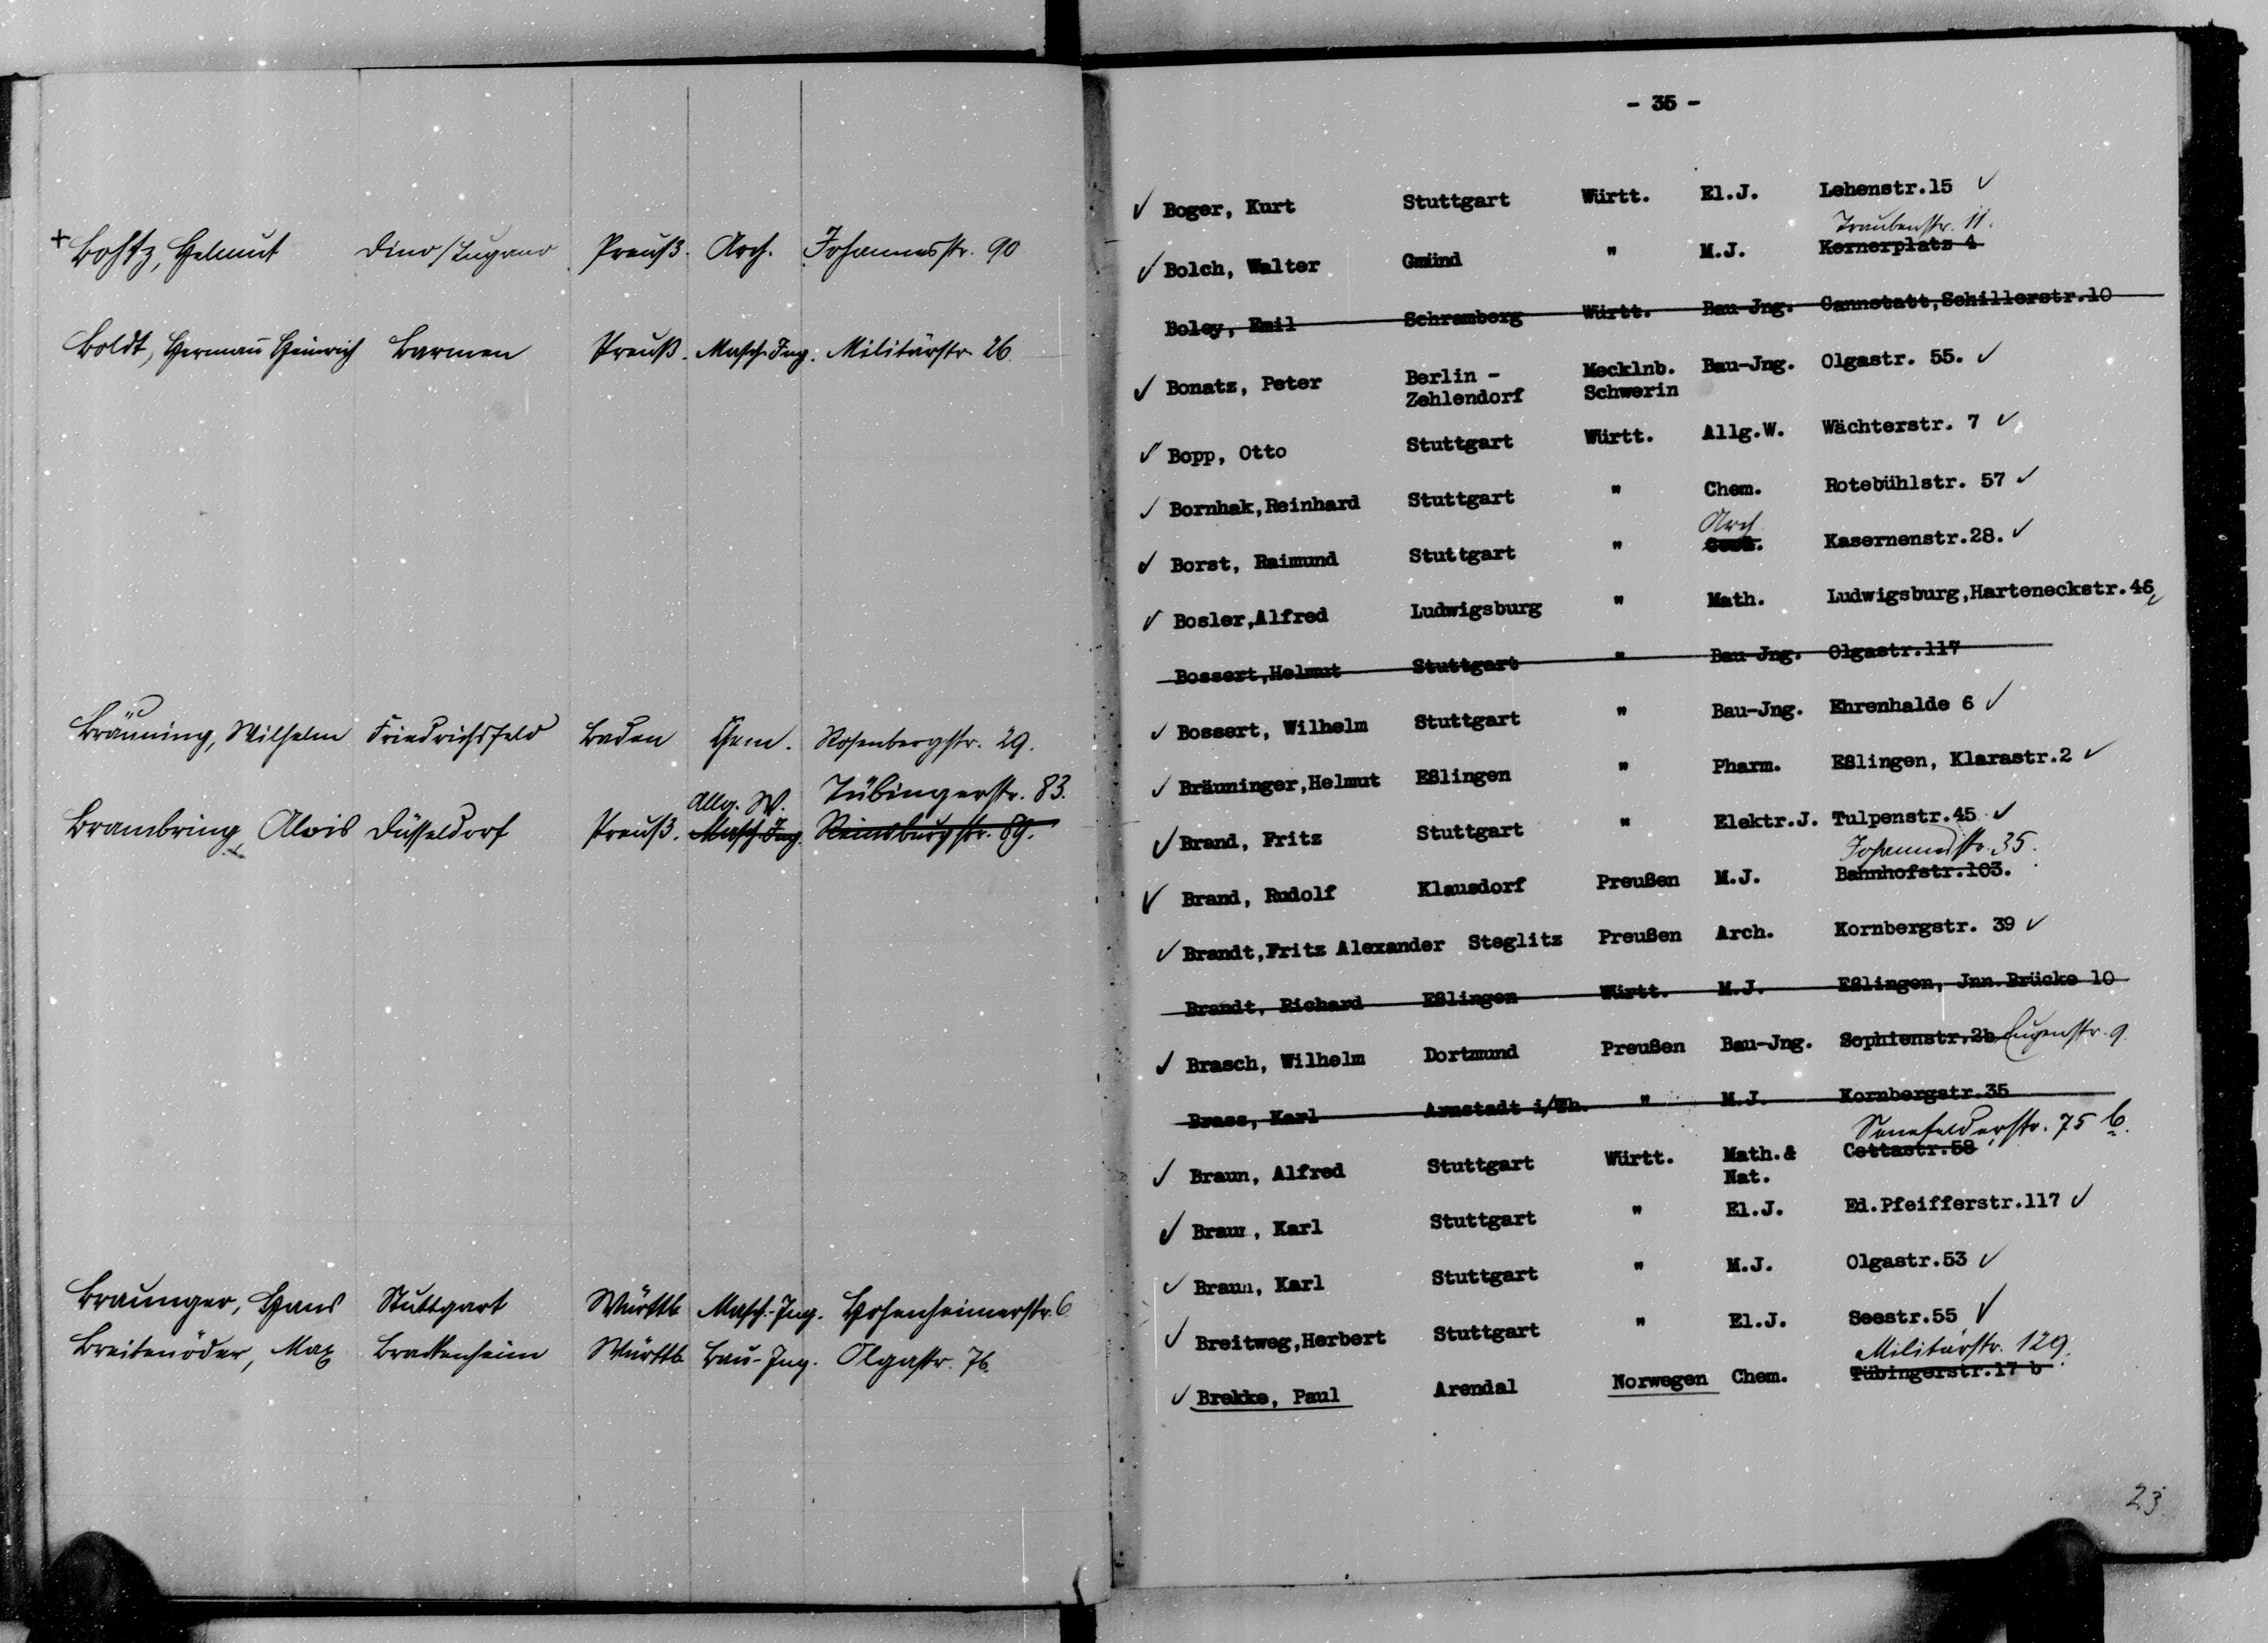 + Bohtz, Helmut Dino/Lugano Preuß. Arch. Johannesstr. 90
Boldt, Hermann Heinrich Barmen Preuß. Masch.-Ing. Militärstr. 26.
Bräuning, Wilhelm Friedrichsfeld Baden Chem. Rosenbergstr. 29.
Allg. W. Tübingerstr. 83.
Brambring, Alois Düsseldorf Preuß. Masch.-Ing. Reinsburgstr. 89.
Braunger, Hans Stuttgart Württb. Masch.-Ing. Hohenheimerstr. 6
Breitenöder, Max Brackenheim Württb. Bau-Ing. Olgastr. 76.
- 35 -
✓ Boger, Kurt Stuttgart Württ. El.J. Lehenstr.15 ✓
Traubenstr. 11.
✓ Bolch, Walter Gmünd " M.J. Kernerplatz 4
Boley, Emil Schramberg Württ. Bau-Jng. Cannstatt,Schillerstr.10
✓ Bonatz, Peter Berlin - Mecklnb. Bau-Jng. Olgastr. 55. ✓
Zehlendorf Schwerin
✓ Bopp, Otto Stuttgart Württ. Allg.W. Wächterstr. 7 ✓
✓ Bornhak,Reinhard Stuttgart " Chem. Rotebühlstr. 57 ✓
Arch.
✓ Borst, Raimund Stuttgart " Kasernenstr.28. ✓
✓ Bosler,Alfred Ludwigsburg " Math. Ludwigsburg,Harteneckstr.46 ✓
Bossert,Helmut Stuttgart " Bau-Jng. Olgastr.117
✓ Bossert, Wilhelm Stuttgart " Bau-Jng. Ehrenhalde 6 ✓
✓ Bräuninger,Helmut Eßlingen " Pharm. Eßlingen, Klarastr.2 ✓
✓ Brand, Fritz Stuttgart " Elektr.J. Tulpenstr.45 ✓
Johannesstr. 35.
✓ Brand, Rudolf Klausdorf Preußen M.J. Bahnhofstr.103.
✓ Brandt,Fritz Alexander Steglitz Preußen Arch. Kornbergstr. 39 ✓
Brandt, Richard Eßlingen Württ. M.J. Eßlingen, Jnn.Brücke 10
✓ Brasch, Wilhelm Dortmund Preußen Bau-Jng. Sophienstr.2b Eugenstr. 9.
Brass, Karl Arnstadt i/Th. " M.J. Kornbergstr.35
Senefelderstr. 75 b.
✓ Braun, Alfred Stuttgart Württ. Math.& Cottastr.58
Nat.
✓ Braun, Karl Stuttgart " El.J. Ed.Pfeifferstr.117 ✓
✓ Braun, Karl Stuttgart " M.J. Olgastr.53 ✓
✓ Breitweg,Herbert Stuttgart " El.J. Seestr.55 ✓
Militärstr. 129.
✓ Brekke, Paul Arendal Norwegen Chem. Tübingerstr.17 b
23